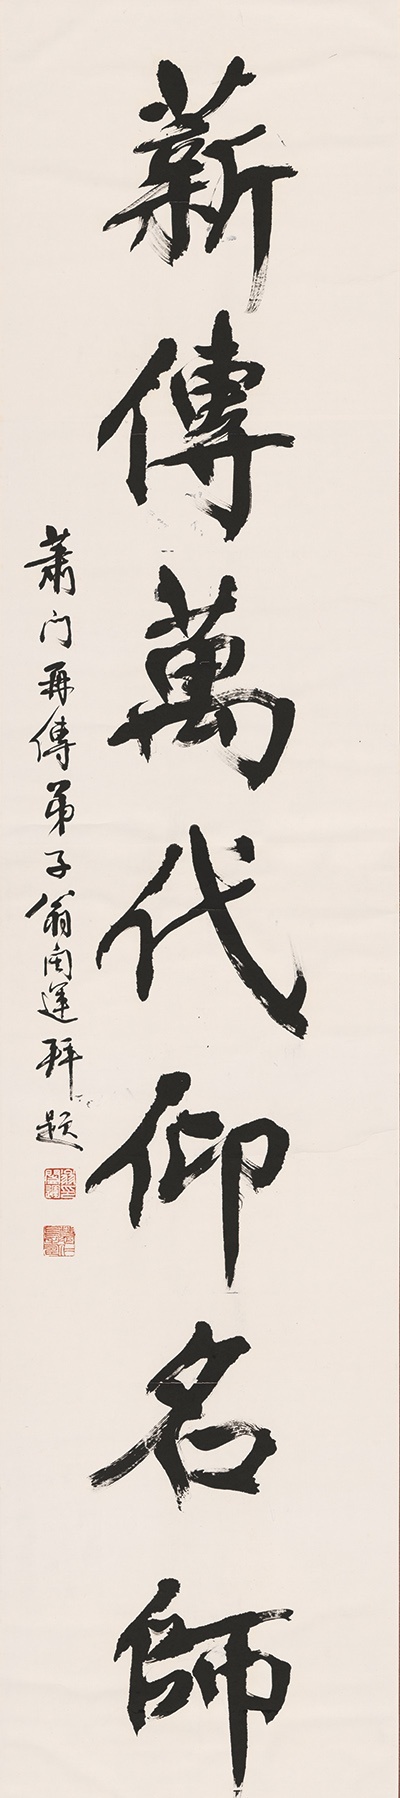 薪傳萬代仰名師
蕭门再傳弟子翁闿運拜題